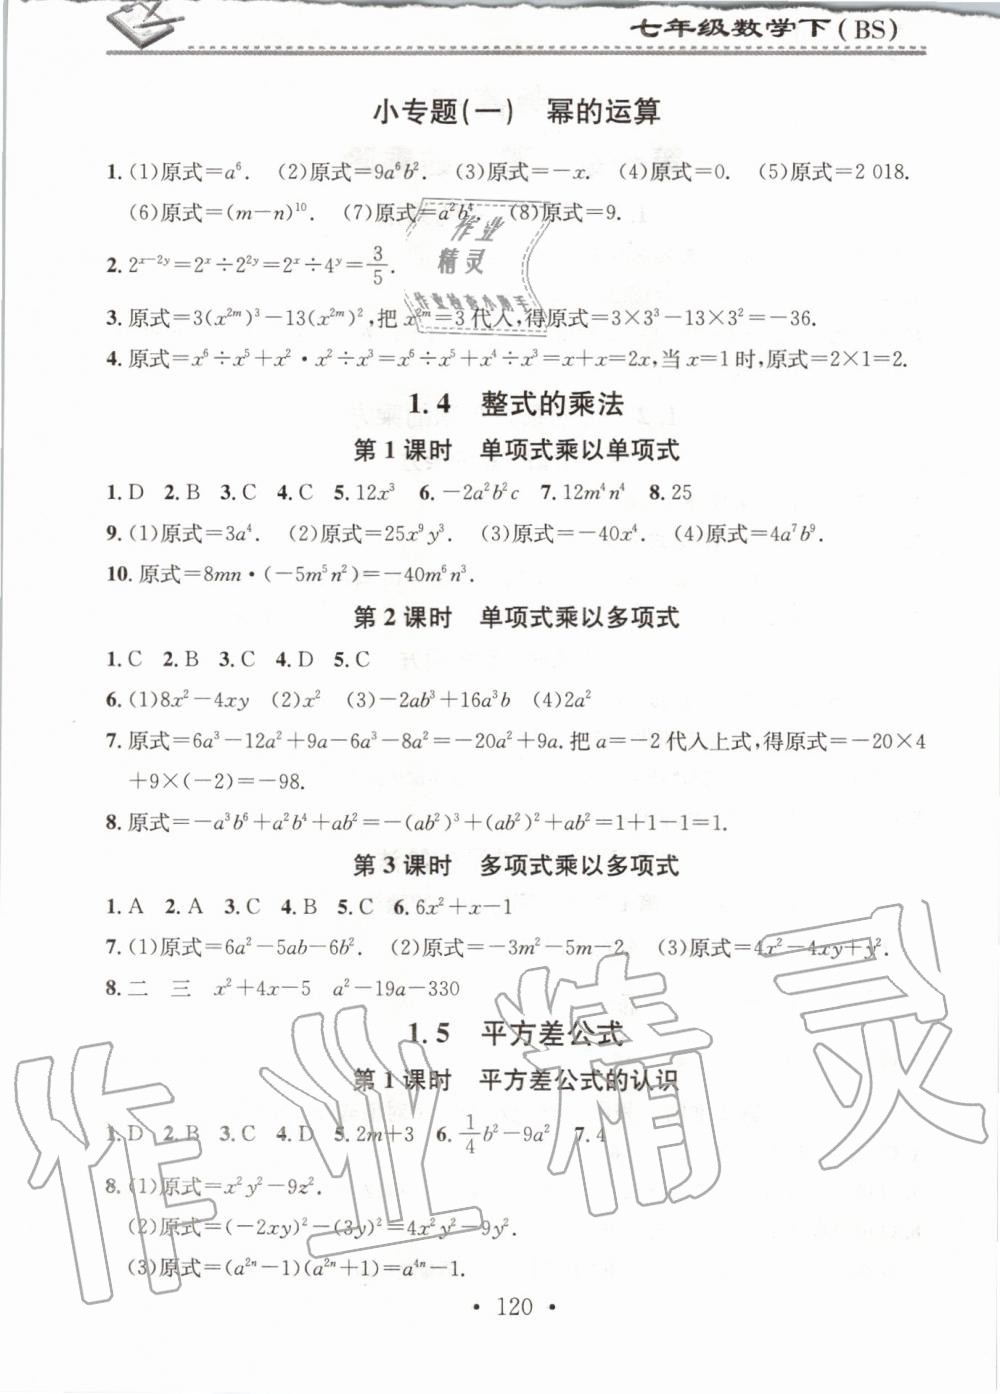 七年级数学下(BS)
小专题(一)　幂的运算
1. (1)原式=a⁶.　(2)原式=9a⁶b².　(3)原式=-x.　(4)原式=0.　(5)原式=2 018.
(6)原式=(m-n)¹⁰.　(7)原式=a²b⁴.　(8)原式=9.
作业
精灵
作业检查小帮手
2. 2ˣ⁻²ʸ=2ˣ÷2²ʸ=2ˣ÷4ʸ=3/5.
3. 原式=3(x²ᵐ)³-13(x²ᵐ)²,把 x²ᵐ=3代入,得原式=3×3³-13×3²=-36.
4. 原式=x⁶÷x⁵+x²·x²÷x³=x⁶÷x⁵+x⁴÷x³=x+x=2x,当 x=1时,原式=2×1=2.
1.4　整式的乘法
第1课时　单项式乘以单项式
1. D　2. B　3. C　4. C　5. 12x³　6. -2a²b²c　7. 12m⁴n⁴　8. 25
9. (1)原式=3a⁴.　(2)原式=25x⁹y³.　(3)原式=-40x⁴.　(4)原式=4a⁷b⁹.
10. 原式=8mn·(-5m⁵n²)=-40m⁶n³.
第2课时　单项式乘以多项式
1. C　2. B　3. C　4. D　5. C
6. (1)8x²-4xy　(2)x²　(3)-2ab³+16a³b　(4)2a²
7. 原式=6a³-12a²+9a-6a³-8a²=-20a²+9a. 把 a=-2代入上式,得原式=-20×4
+9×(-2)=-98.
8. 原式=-a³b⁶+a²b⁴+ab²=-(ab²)³+(ab²)²+ab²=1+1-1=1.
第3课时　多项式乘以多项式
1. A　2. A　3. C　4. B　5. C　6. 6x²+x-1
7. (1)原式=6a²-5ab-6b².　(2)原式=-3m²-5m-2.　(3)原式=4x²-4xy+y².
8. 二　三　x²+4x-5　a²-19a-330
1.5　平方差公式
第1课时　平方差公式的认识
1. D　2. B　3. C　4. D　5. 2m+3　6. 1/4b²-9a²　7. 4
8. (1)原式=x²y²-9z².
(2)原式=(-2xy)²-(3y)²=4x²y²-9y².
(3)原式=(a²ⁿ-1)(a²ⁿ+1)=a⁴ⁿ-1.
作业精灵
· 120 ·